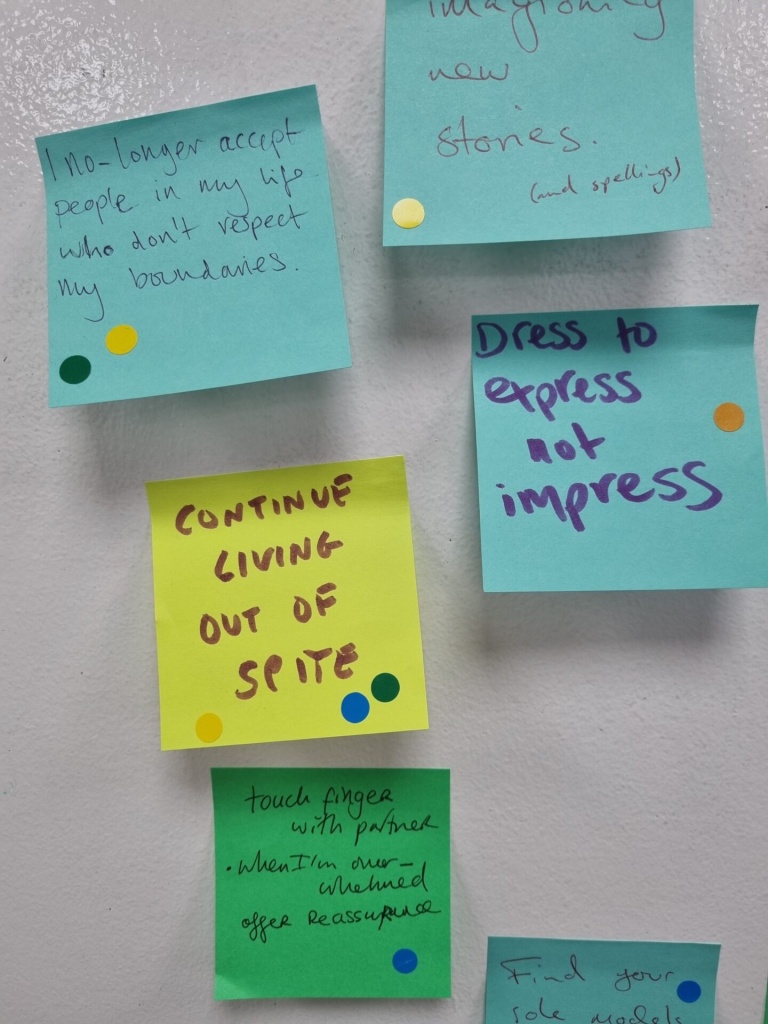 imagioning
new
stories.
(and spellings)
I no-longer accept
people in my life
who don't respect
my boundaries.
Dress to
express
not
impress
CONTINUE
LIVING
OUT OF
SPITE
touch finger
with partner
• when I'm over-
whelmed
offer Reassurance
Find your
role models